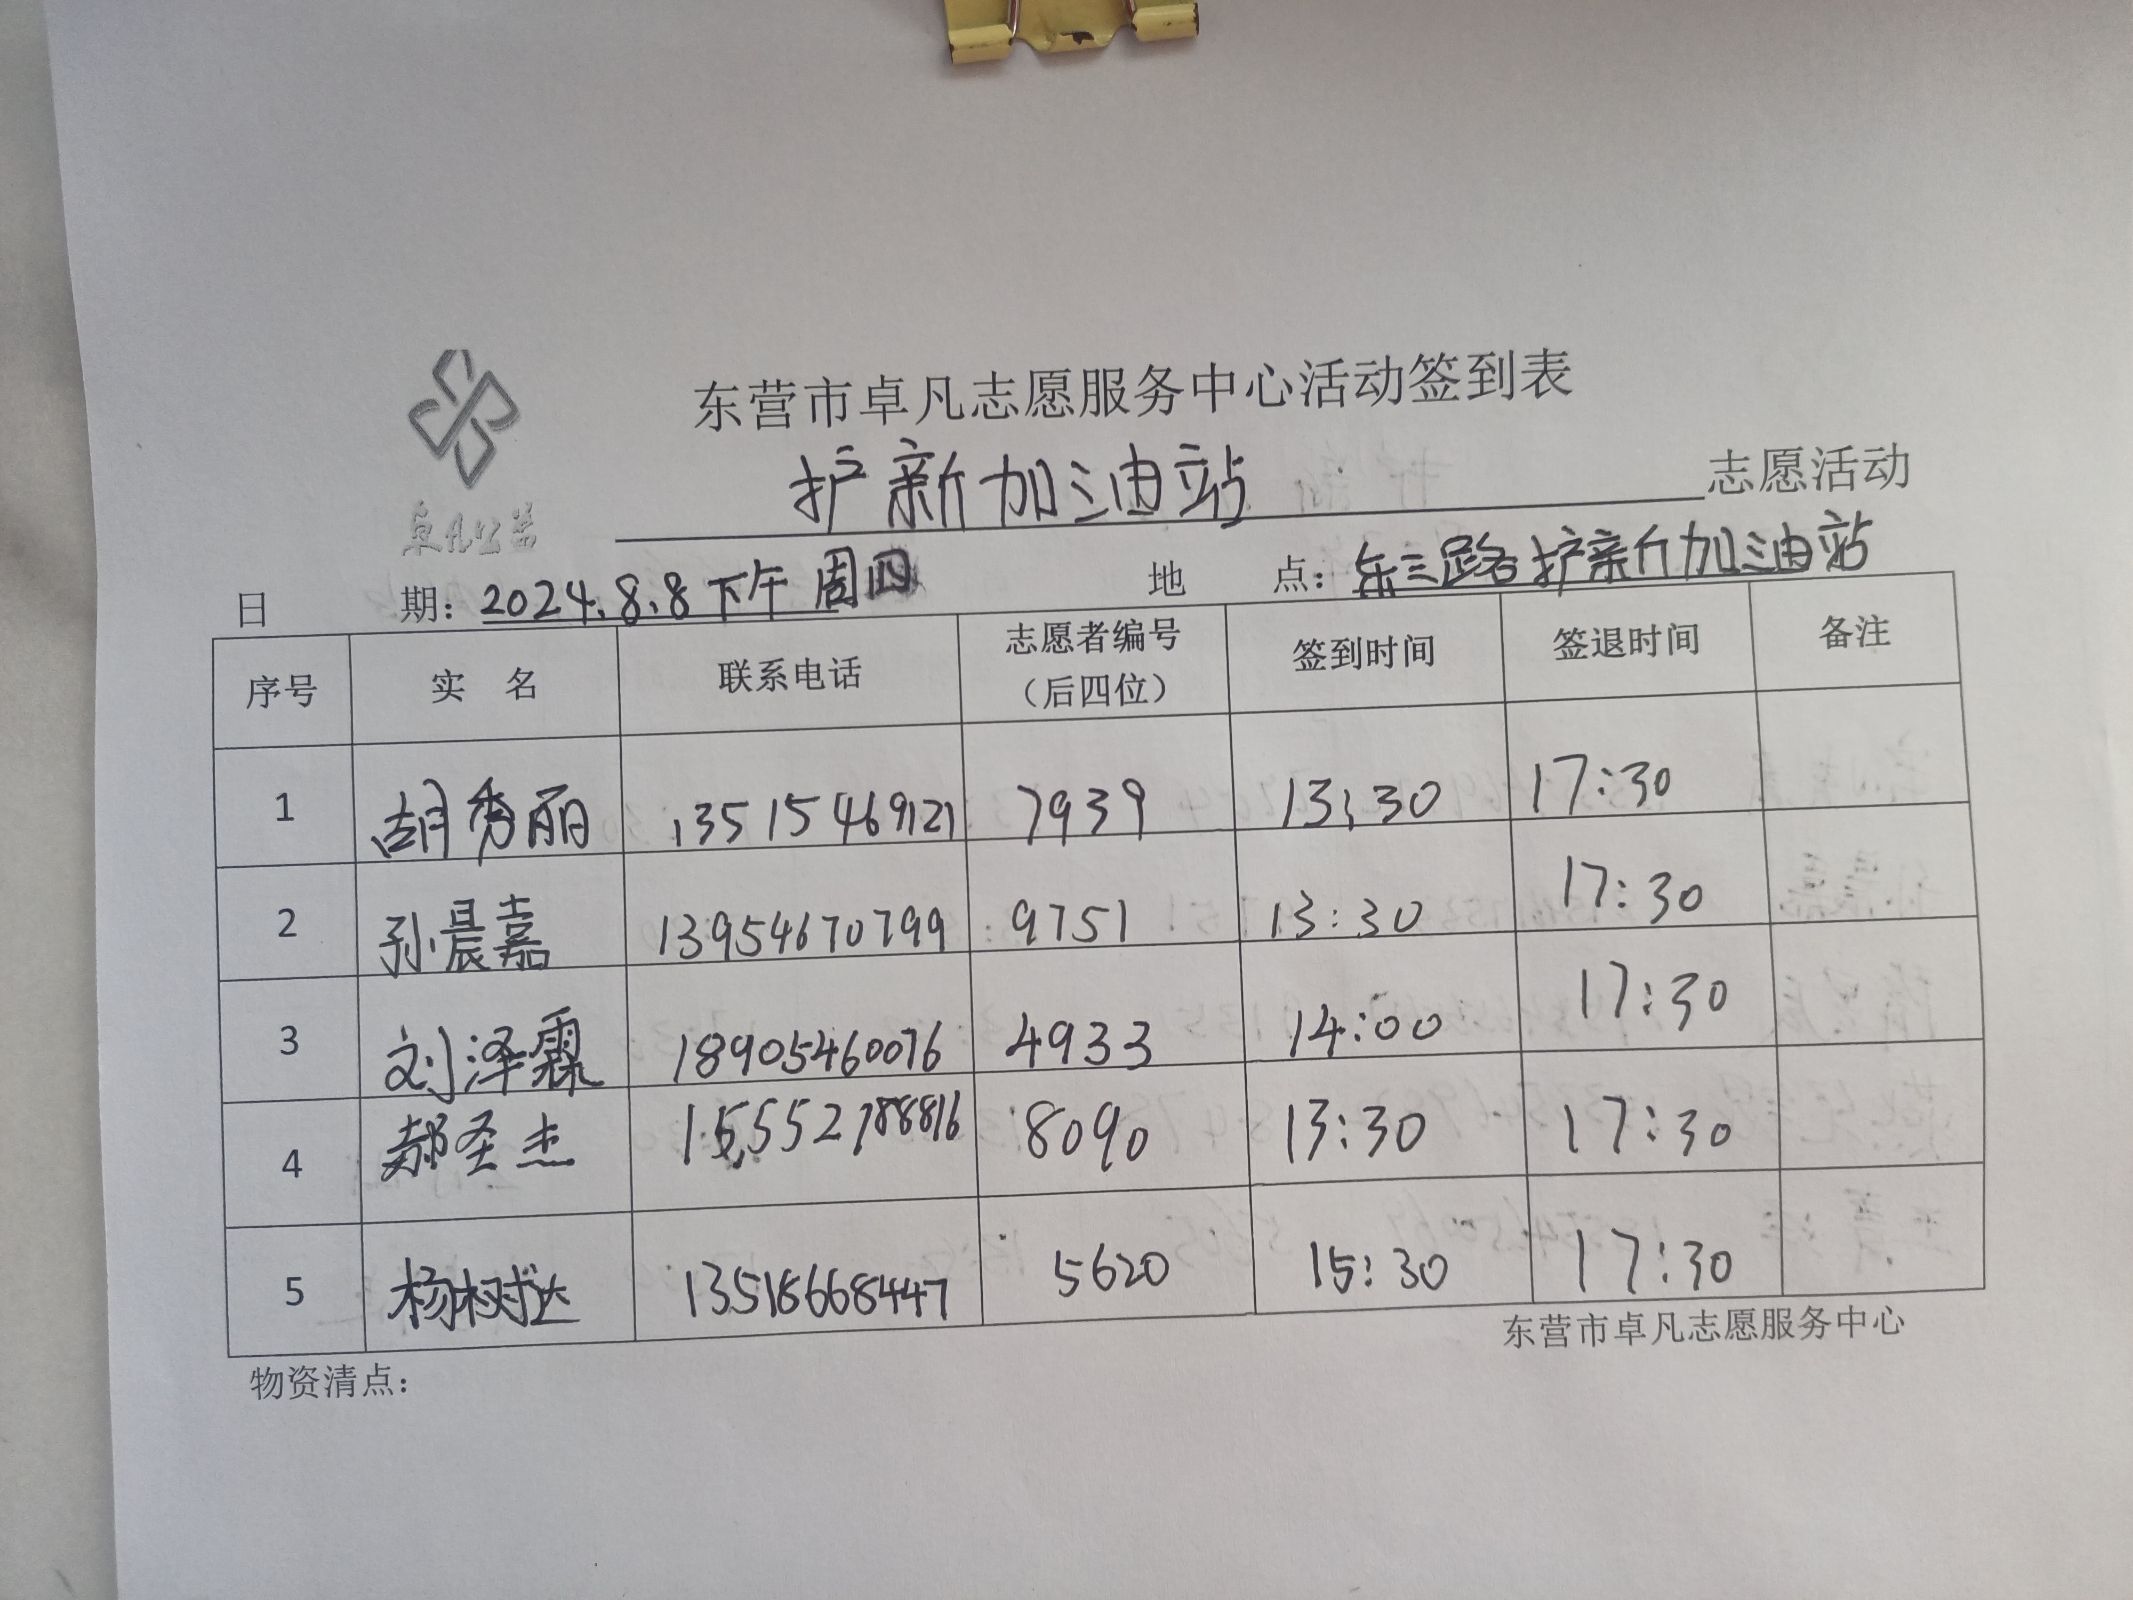 东营市卓凡志愿服务中心活动签到表
护新加油站 志愿活动
卓凡公益
日 期：2024.8.8 下午 周四 地 点：东三路护新加油站
序号 实 名 联系电话 志愿者编号（后四位） 签到时间 签退时间 备注
1 胡秀丽 13515469121 7939 13:30 17:30
2 孙晨嘉 13954670799 9751 13:30 17:30
3 刘泽霖 18905460076 4933 14:00 17:30
4 郝圣杰 15552788816 8090 13:30 17:30
5 杨树达 13518668447 5620 15:30 17:30
东营市卓凡志愿服务中心
物资清点：